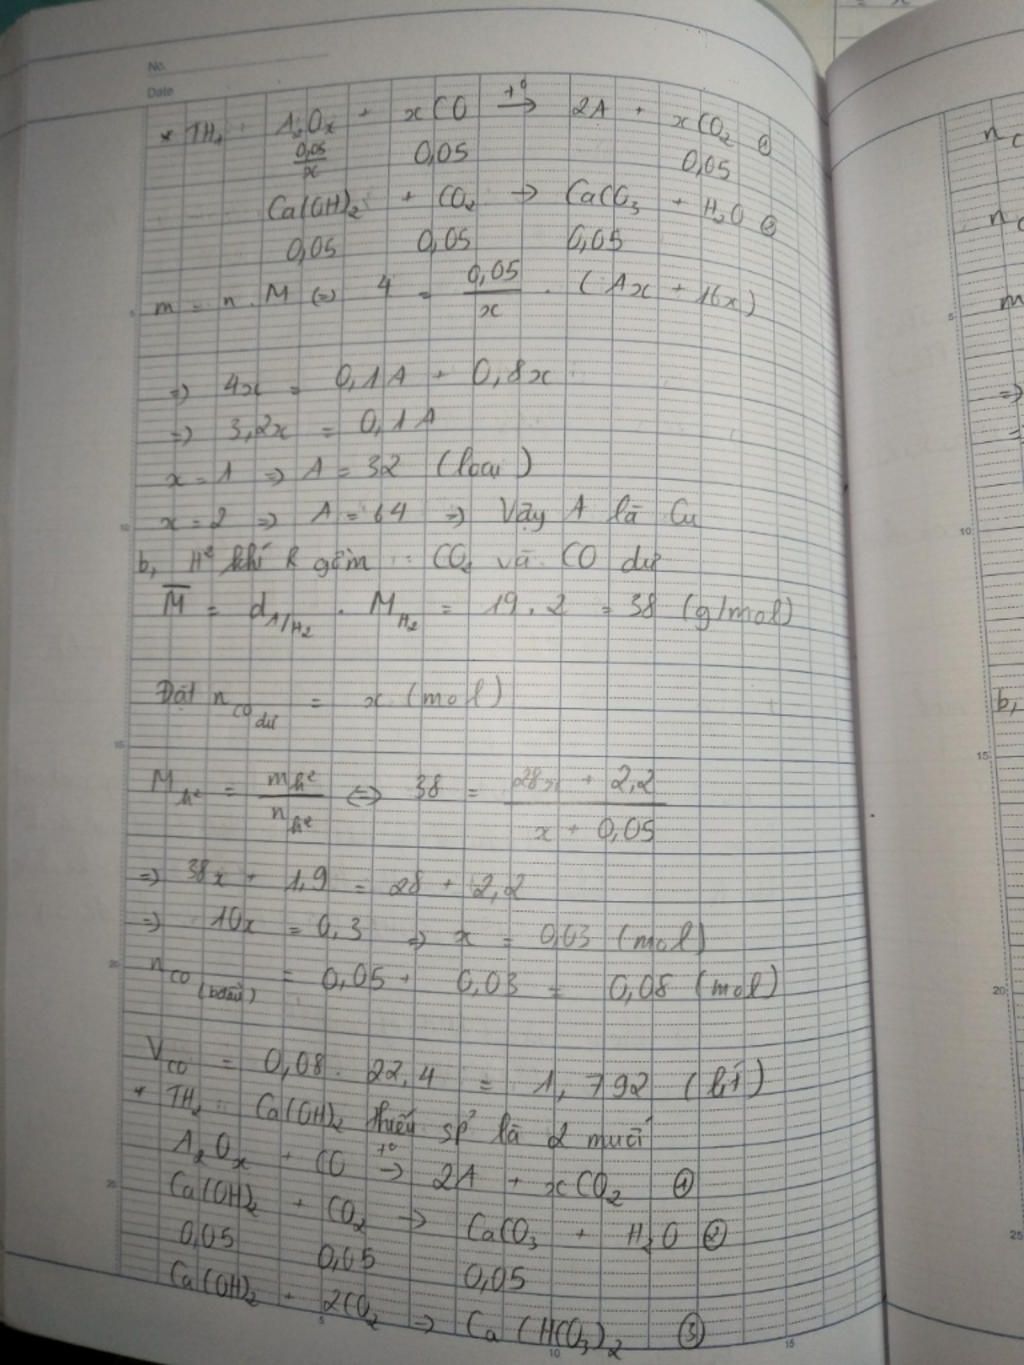 No.
Date
* TH₁: A₂Oₓ + xCO →(t°) 2A + xCO₂ ①
0,05/x 0,05 0,05
Ca(OH)₂ + CO₂ → CaCO₃ + H₂O ②
0,05 0,05 0,05
m = n . M (=) 4 = 0,05/x . (Ax + 16x)
=) 4x = 0,1A + 0,8x
=) 3,2x = 0,1A
x = 1 =) A = 32 (loại)
x = 2 =) A = 64 =) Vậy A là Cu
b, H² khí R gồm : CO₂ và CO dư
M̅ = d A/H₂ . M H₂ = 19 . 2 = 38 (g/mol)
Đặt n CO dư = x (mol)
M h² = m h²/n h² ⇔ 38 = (28x + 2,2)/(x + 0,05)
=) 38x + 1,9 = 28 + 2,2
=) 10x = 0,3 =) x = 0,03 (mol)
n CO (bđầu) = 0,05 + 0,03 = 0,08 (mol)
V CO = 0,08 . 22,4 = 1,792 (lít)
* TH₂ : Ca(OH)₂ thiếu sp là 2 muối
A₂Oₓ + CO →(t°) 2A + xCO₂ ①
Ca(OH)₂ + CO₂ → CaCO₃ + H₂O ②
0,05 0,05 0,05
Ca(OH)₂ + 2CO₂ → Ca(HCO₃)₂ ③
5
10
15
20
25
5
10
15
n C
n C
5
m
=)
=
10
b,
15
20
25